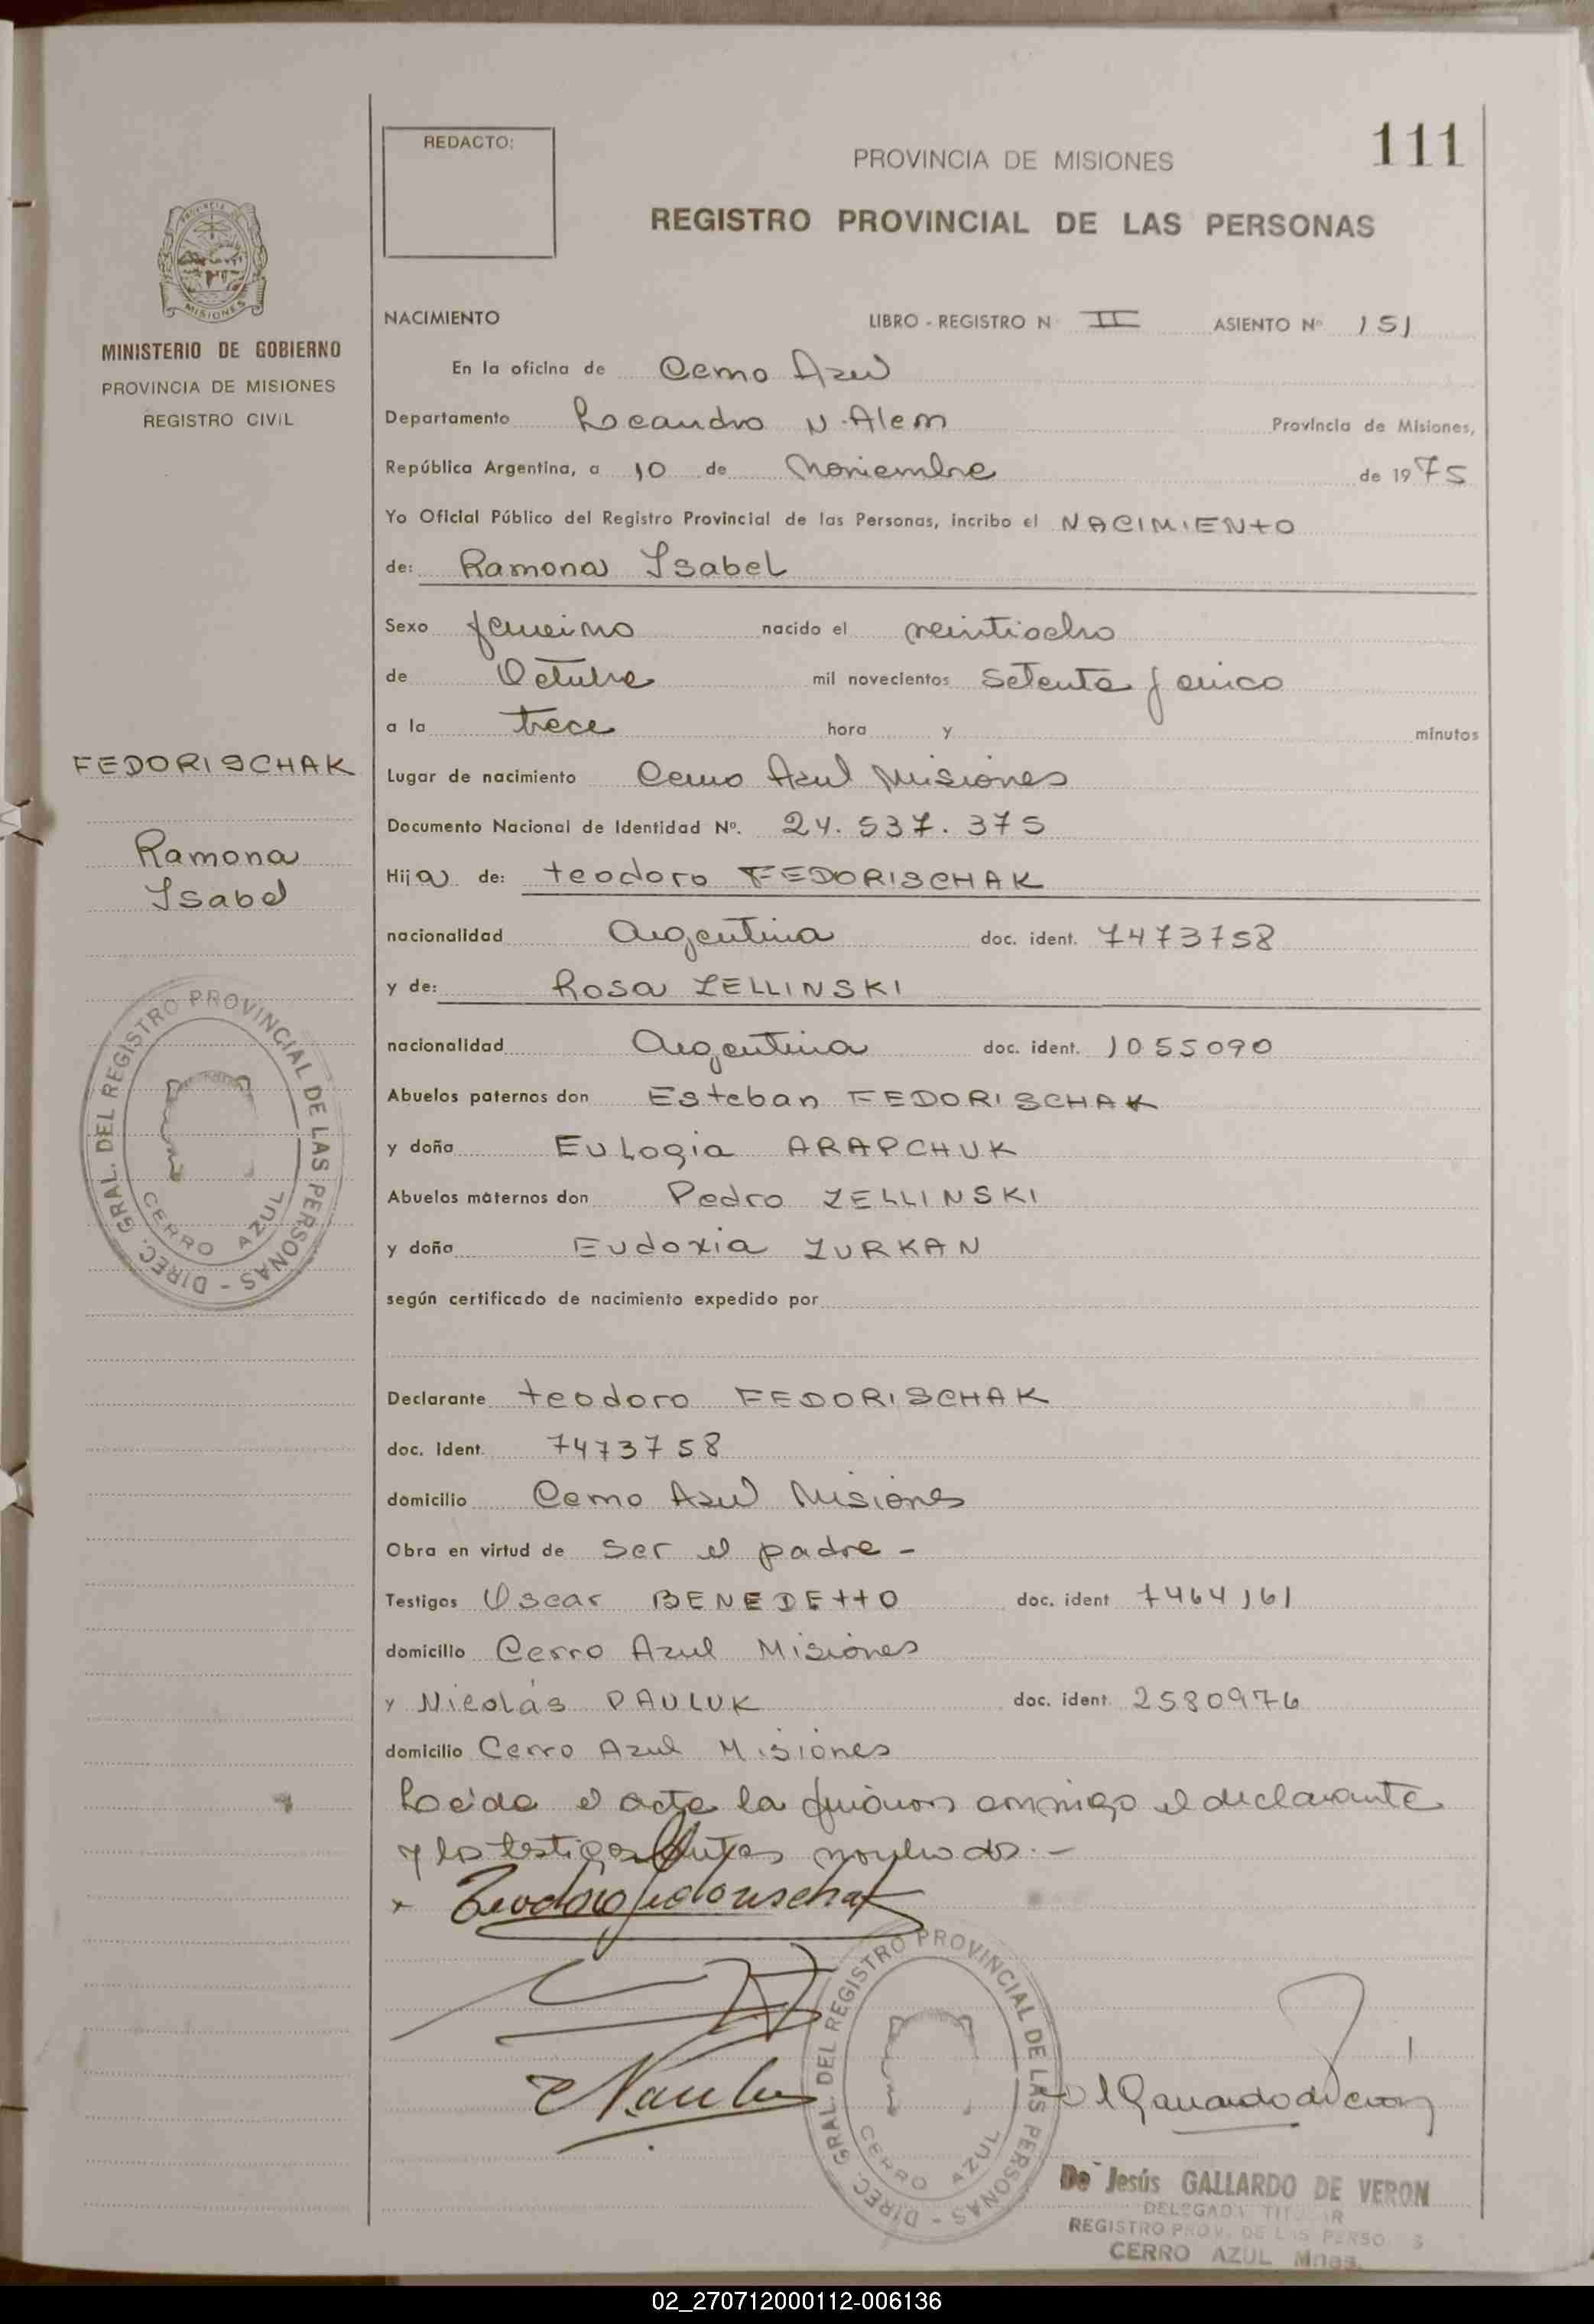 111
REDACTO:
PROVINCIA DE MISIONES
REGISTRO PROVINCIAL DE LAS PERSONAS
MISIONES
MINISTERIO DE GOBIERNO
PROVINCIA DE MISIONES
REGISTRO CIVIL
NACIMIENTO LIBRO - REGISTRO N II ASIENTO Nº 151
En la oficina de Cerro Azul
Departamento Leandro N. Alem Provincia de Misiones,
República Argentina, a 10 de Noviembre de 1975
Yo Oficial Público del Registro Provincial de las Personas, incribo el NACIMIENTO
de: Ramona Isabel
Sexo femenino nacido el veintiocho
de Octubre mil novecientos setenta y cinco
a la trece hora y minutos
FEDORISCHAK
Ramona
Isabel
Lugar de nacimiento Cerro Azul Misiones
Documento Nacional de Identidad Nº. 24.537.375
Hija de: teodoro FEDORISCHAK
nacionalidad Argentina doc. ident. 7473758
y de: Rosa ZELLINSKI
nacionalidad Argentina doc. ident. 1055090
Abuelos paternos don Esteban FEDORISCHAK
y doña Eulogia ARAPCHUK
Abuelos maternos don Pedro ZELLINSKI
y doña Eudoxia ZURKAN
DIREC. GRAL. DEL REGISTRO PROVINCIAL DE LAS PERSONAS -
CERRO AZUL
según certificado de nacimiento expedido por
Declarante teodoro FEDORISCHAK
doc. Ident. 7473758
domicilio Cerro Azul Misiones
Obra en virtud de ser el padre -
Testigos Oscar BENEDETTO doc. ident 7464161
domicilio Cerro Azul Misiones
y Nicolás PAULUK doc. ident. 2580976
domicilio Cerro Azul Misiones
Leida el acta la firmaron conmigo el declarante
y los testigos antes nombrados.-
x Teodoro Fedorischak
DIREC. GRAL. DEL REGISTRO PROVINCIAL DE LAS PERSONAS -
CERRO AZUL
De Jesús GALLARDO DE VERON
DELEGADA TITULAR
REGISTRO PROV. DE LAS PERSONAS
CERRO AZUL Mnes.
02_270712000112-006136